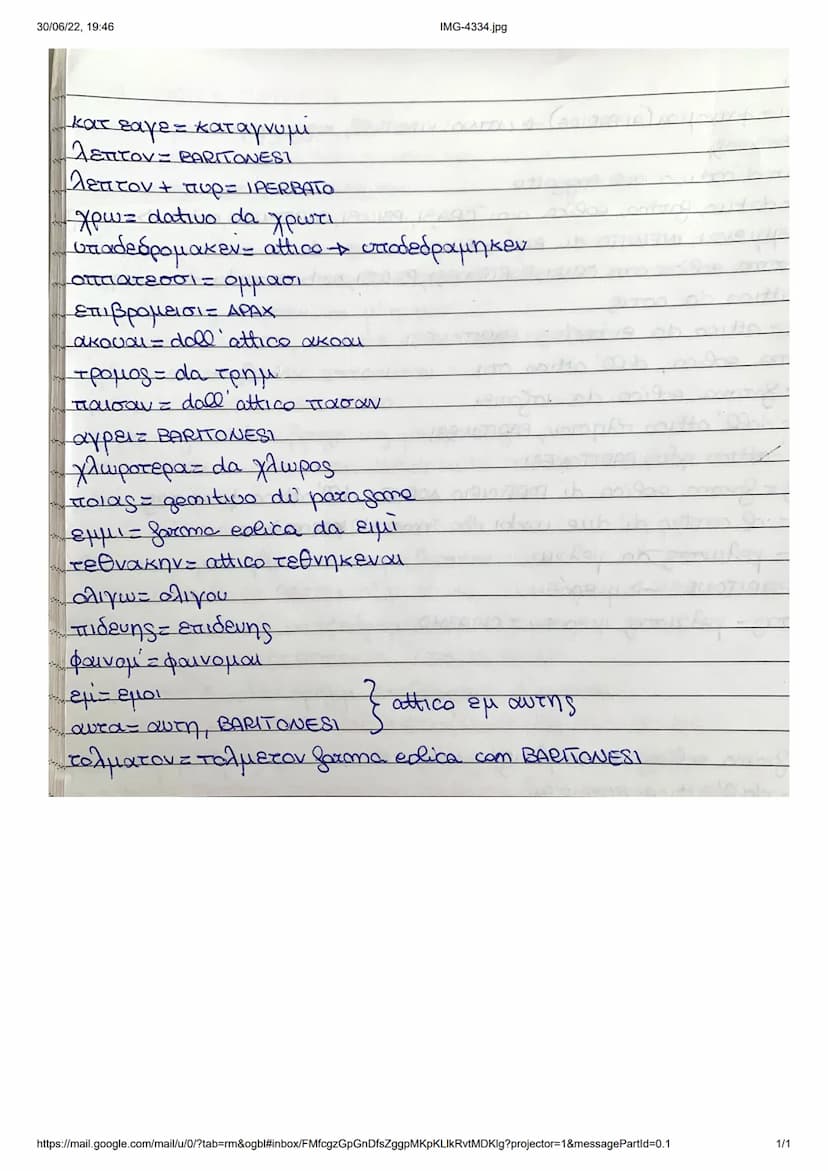 30/06/22, 19:46
IMG-4334.jpg
κατ εαγε= καταγνυμι
λεπτον= BARITONESI
λεπτον + πυρ= IPERBATO
χρω= dativo da χρωτι
υπαδεδρομακεν= attico → υποδεδραμηκεν
οππατεσσι= ομμασι
επιβρομεισι= APAX
ακουαι= dall'attico ακοαι
τρομος= da τρημ
παισαν= dall'attico πασαν
αγρει= BARITONESI
χλωροτερα= da χλωρος
ποιας= genitivo di paragone
εμμι= forma eolica da ειμì
τεθνακην= attico τεθνηκεναι
ολιγω= ολιγου
πιδευης= επιδευης
φαινομ'= φαινομαι
εμ'= εμοι
αυτα= αυτη, BARITONESI } attico εμ αυτης
τολματον= τολμετον forma eolica con BARITONESI
https://mail.google.com/mail/u/0/?tab=rm&ogbl#inbox/FMfcgzGpGnDfsZggpMKpKLlkRvtMDKlg?projector=1&messagePartId=0.1
1/1